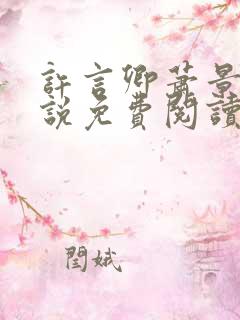 許言卿蕭景
說免費閱讀
閏娥